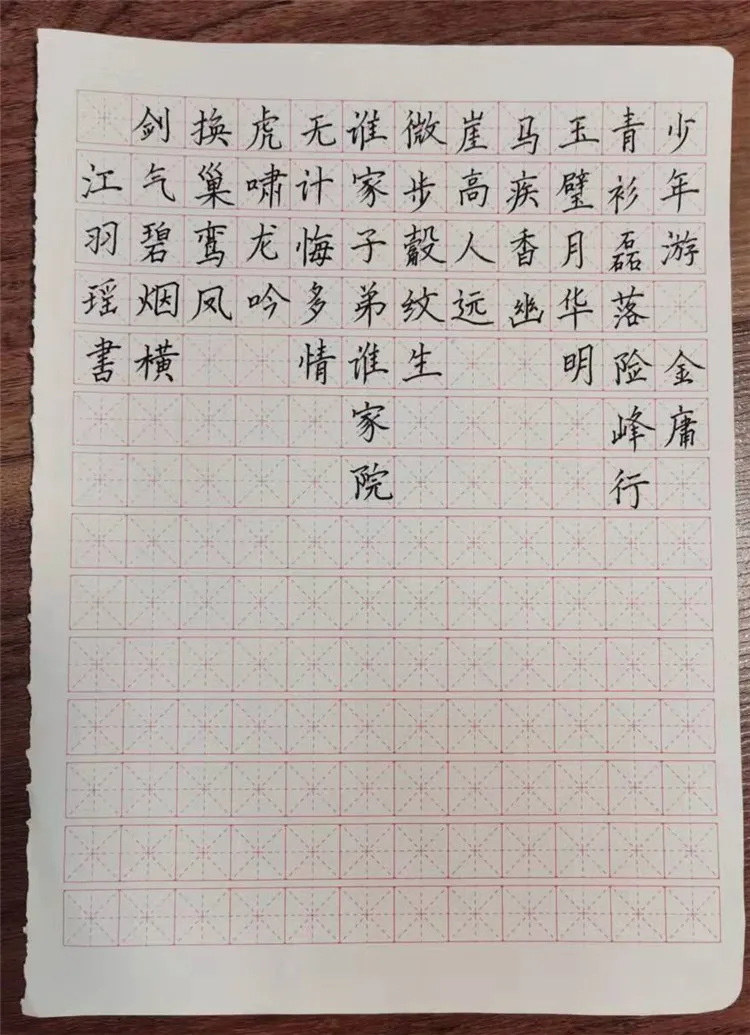 少年游 金庸
青衫磊落险峰行
玉璧月华明
马疾香幽
崖高人远
微步縠纹生
谁家子弟谁家院
无计悔多情
虎啸龙吟
换巢鸾凤
剑气碧烟横
江羽瑶書